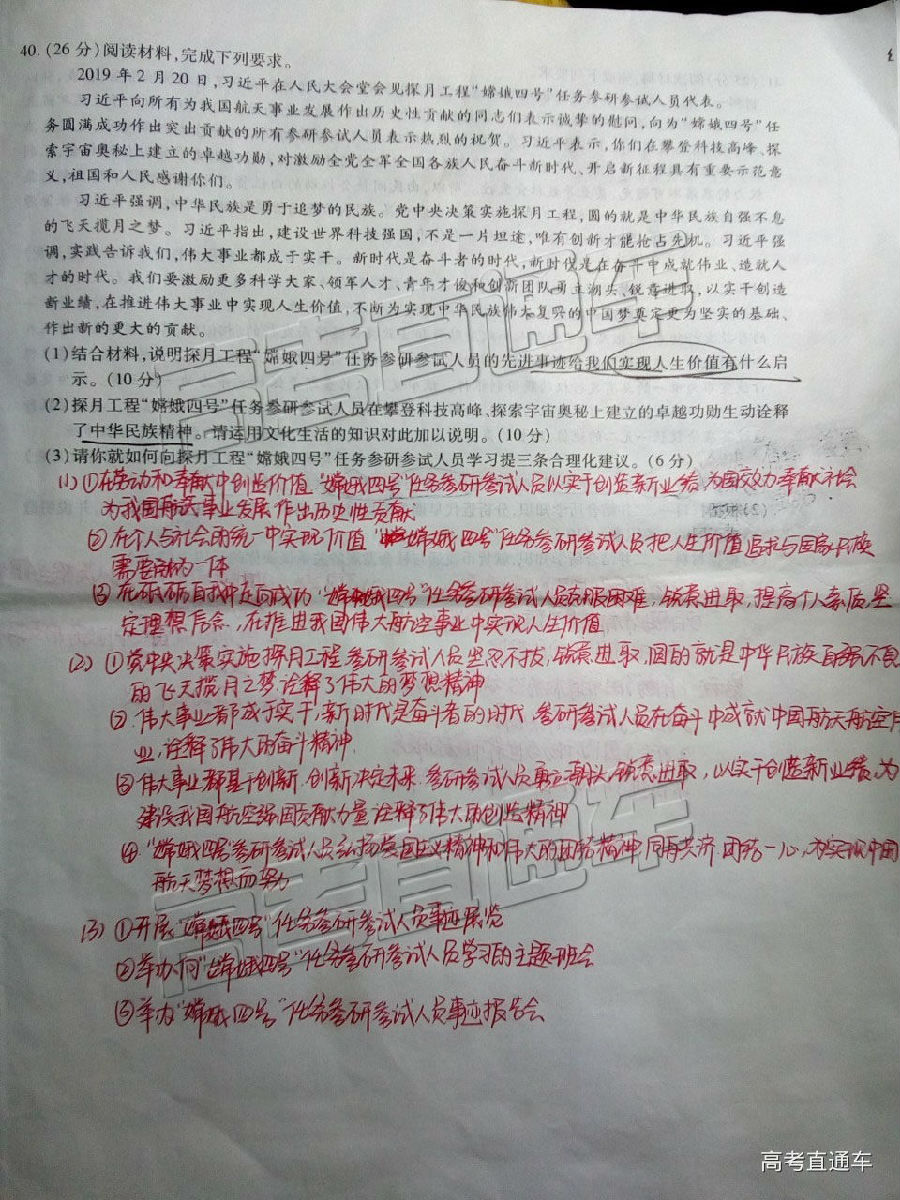 40.(26分)阅读材料,完成下列要求。
2019年2月20日,习近平在人民大会堂会见探月工程“嫦娥四号”任务参研参试人员代表。
习近平向所有为我国航天事业发展作出历史性贡献的同志们表示诚挚的慰问,向为“嫦娥四号”任
务圆满成功作出突出贡献的所有参研参试人员表示热烈的祝贺。习近平表示,你们在攀登科技高峰、探
索宇宙奥秘上建立的卓越功勋,对激励全党全军全国各族人民奋斗新时代、开启新征程具有重要示范意
义,祖国和人民感谢你们。
习近平强调,中华民族是勇于追梦的民族。党中央决策实施探月工程,圆的就是中华民族自强不息
的飞天揽月之梦。习近平指出,建设世界科技强国,不是一片坦途,唯有创新才能抢占先机。习近平强
调,实践告诉我们,伟大事业都成于实干。新时代是奋斗者的时代,新时代是在奋斗中成就伟业、造就人
才的时代。我们要激励更多科学大家、领军人才、青年才俊和创新团队勇立潮头、锐意进取,以实干创造
新业绩,在推进伟大事业中实现人生价值,不断为实现中华民族伟大复兴的中国梦奠定更为坚实的基础、
作出新的更大的贡献。
(1)结合材料,说明探月工程“嫦娥四号”任务参研参试人员的先进事迹给我们实现人生价值有什么启
示。(10分)
(2)探月工程“嫦娥四号”任务参研参试人员在攀登科技高峰、探索宇宙奥秘上建立的卓越功勋生动诠释
了中华民族精神。请运用文化生活的知识对此加以说明。(10分)
(3)请你就如何向探月工程“嫦娥四号”任务参研参试人员学习提三条合理化建议。(6分)
(1)①在劳动和奉献中创造价值,“嫦娥四号”任务参研参试人员以实干创造新业绩,为国效力奉献社会
为我国航天事业发展作出历史性贡献
②在个人与社会的统一中实现价值“嫦娥四号”任务参研参试人员把人生价值追求与国家民族
需要融为一体
③在砥砺自我中走向成功“嫦娥四号”任务参研参试人员克服困难,锐意进取,提高个人素质,坚
定理想信念,在推进我国伟大航空事业中实现人生价值
(2)①党中央决策实施探月工程,参研参试人员坚忍不拔,锐意进取,圆的就是中华民族自强不息
的飞天揽月之梦,诠释了伟大的梦想精神
②伟大事业都成于实干,新时代是奋斗者的时代,参研参试人员在奋斗中成就中国航天航空
业,诠释了伟大的奋斗精神
③伟大事业都基于创新,创新决定未来,参研参试人员勇立潮头,锐意进取,以实干创造新业绩,为
建设我国航空强国贡献力量,诠释了伟大的创造精神
④“嫦娥四号”参研参试人员弘扬爱国主义精神和伟大的团结精神,同舟共济,团结一心,为实现中国
航天梦想而努力
(3)①开展“嫦娥四号”任务参研参试人员事迹展览
②举办向“嫦娥四号”任务参研参试人员学习的主题班会
③举办“嫦娥四号”任务参研参试人员事迹报告会
高考直通车
高考直通车
高考直通车